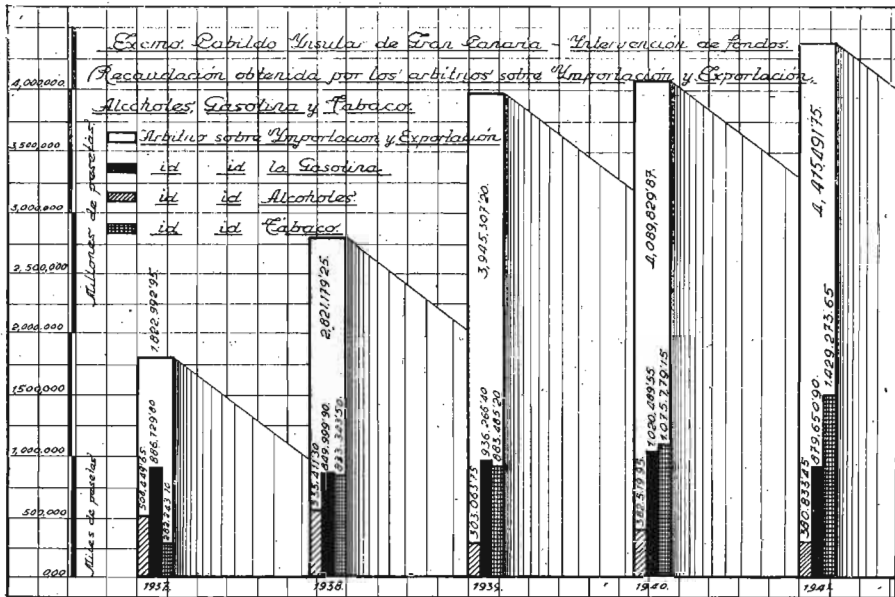 Excmo. Cabildo Insular de Gran Canaria - Intervención de fondos.
Recaudación obtenida por los arbitrios sobre Importación y Exportación,
Alcoholes, Gasolina y Tabaco.
Arbitrio sobre Importacion y Exportación
id id la Gasolina.
id id Alcoholes.
id id Tabaco.
Millones de pesetas.
Miles de pesetas
4,000,000
3,500,000
3,000,000
2,500,000
2,000,000
1,500,000
1,000,000
500,000
0,00
1.822.992'95
508.449'65
886.729'80
282.243'10
2,821,179'25
849.999'90
3,945,307'20
303.063'75
936,266'40
883.485'20
4,089,829'87
1.020,489'55
1.075.779'15
4,475,491'75
380.833'45
879.650'90
1.029.273'65
1937.
1938.
1939.
1940.
1941.